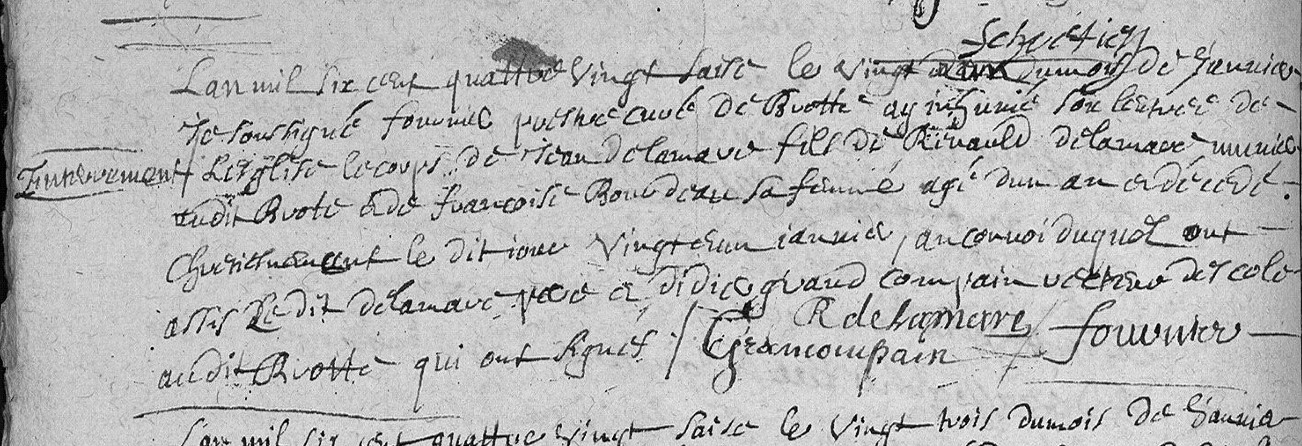 Schretien
Lan mil six cent quattre vingt saise le vingt deux du mois de Janvier
Je soussigné fournier prestre curé de Brotte ay inhumé sox lentree de
Linterrement / Leglise le corps de Jean delamare fils de Renauld delamare munier
audit Brote et de francoise Bourdeau sa femme agé dun an et décédé
chretiennement le dit jour vingt et un janvier, au convoi duquel ont
assis Ledit delamare pere et didier grand compain recteur descole
audit Brotte qui ont signes /
R delamarre / fournier
Grancoinpain
Lan mil six cent quattre vingt saise le vingt trois du mois de Janvier